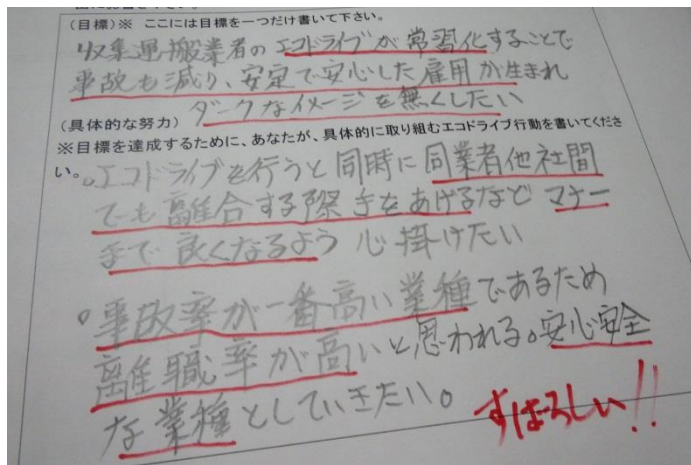 (目標)※ ここには目標を一つだけ書いて下さい。
収集運搬業者のエコドライブが常習化することで
事故も減り、安定で安心した雇用が生まれ
ダークなイメージを無くしたい
(具体的な努力)
※目標を達成するために、あなたが、具体的に取り組むエコドライブ行動を書いてくださ
い。
○エコドライブを行うと同時に同業者他社間
でも離合する際手をあげるなどマナー
まで良くなるよう心掛けたい
○事故率が一番高い業種であるため
離職率が高いと思われる。安心安全
な業種としていきたい。
すばらしい!!